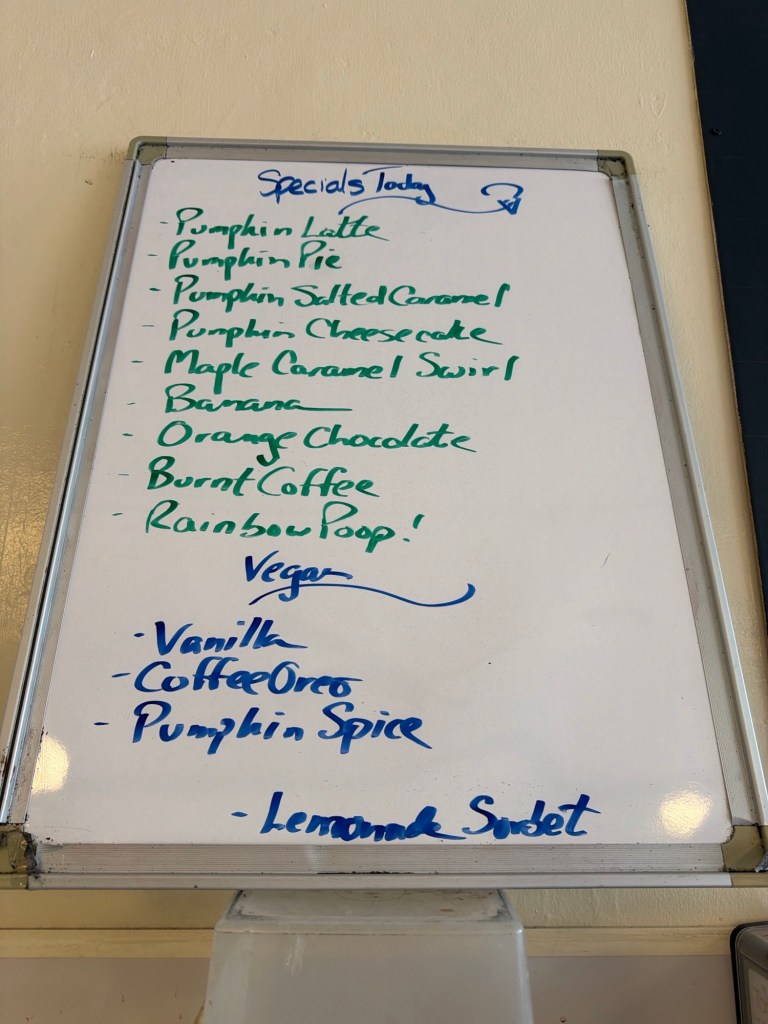 Specials Today
- Pumpkin Latte
- Pumpkin Pie
- Pumpkin Salted Caramel
- Pumpkin Cheesecake
- Maple Caramel Swirl
- Banana
- Orange Chocolate
- Burnt Coffee
- Rainbow Poop!
Vegan
- Vanilla
- Coffee Oreo
- Pumpkin Spice
- Lemonade Sorbet